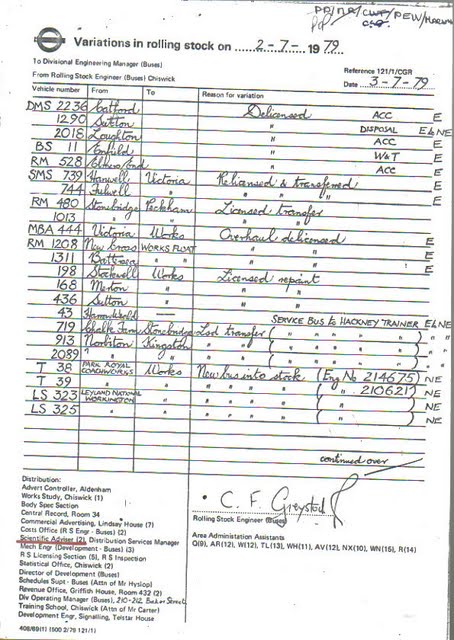 PP/NR/CWF/PEW/
Variations in rolling stock on 2-7-1979.
To Divisional Engineering Manager (Buses)
From Rolling Stock Engineer (Buses) Chiswick
Reference 121/1/CGR
Date 3-7-79
Vehicle number From To Reason for variation
DMS 2236 Catford Delicensed ACC E
1290 Sutton " DISPOSAL E&NE
2018 Loughton " ACC E
BS 11 Enfield " W&T E
RM 528 Elmers End " ACC E
SMS 739 Hanwell Victoria Relicensed & transferred E
744 Fulwell " " " E
RM 480 Stonebridge Peckham Licensed transfer
1013 " " " "
MBA 444 Victoria Works Overhaul delicensed E
RM 1208 New Cross WORKS FLOAT " " E
1311 Battersea " " " " E
198 Stockwell Works Licensed repaint
168 Merton " " "
436 Sutton " " "
43 Harrow Weald — SERVICE BUS to HACKNEY TRAINER E&NE
719 Chalk Farm Stonebridge Lsd transfer ( " " " " ) "
913 Norbiton Kingston " " ( " " " " ) "
2089 " " " " ( " " " " ) "
T 38 PARK ROYAL COACHWORKS Works New bus into stock (Eng No 214675) NE
T 39 " " " " " " ( " " 210621) NE
LS 323 LEYLAND NATIONAL WORKINGTON " " " " " ( " " ) NE
LS 325 " " " " " " ( " " ) NE
continued over
Distribution:
Advert Controller, Aldenham
Works Study, Chiswick (1)
Body Spec Section
Central Record, Room 34
Commercial Advertising, Lindsay House (7)
Costs Office (R S Engr - Buses) (2)
Scientific Adviser (2), Distribution Services Manager
Mech Engr (Development - Buses) (3)
R S Licensing Section (5), R S Inspection
Statistical Office, Chiswick (2)
Director of Development (Buses)
Schedules Supt - Buses (Attn of Mr Hyslop)
Revenue Office, Griffith House, Room 432 (2)
Div Operating Manager (Buses), 210-212 Baker Street
Training School, Chiswick (Attn of Mr Carter)
Development Engr, Signalling, Telstar House
408/89(1) (500 2/79 121/1)
C. F. Greystod
Rolling Stock Engineer (Buses)
Area Administration Assistants
Q(9), AR(12), W(12), TL(13), WH(11), AV(12), NX(10), WN(15), R(14)